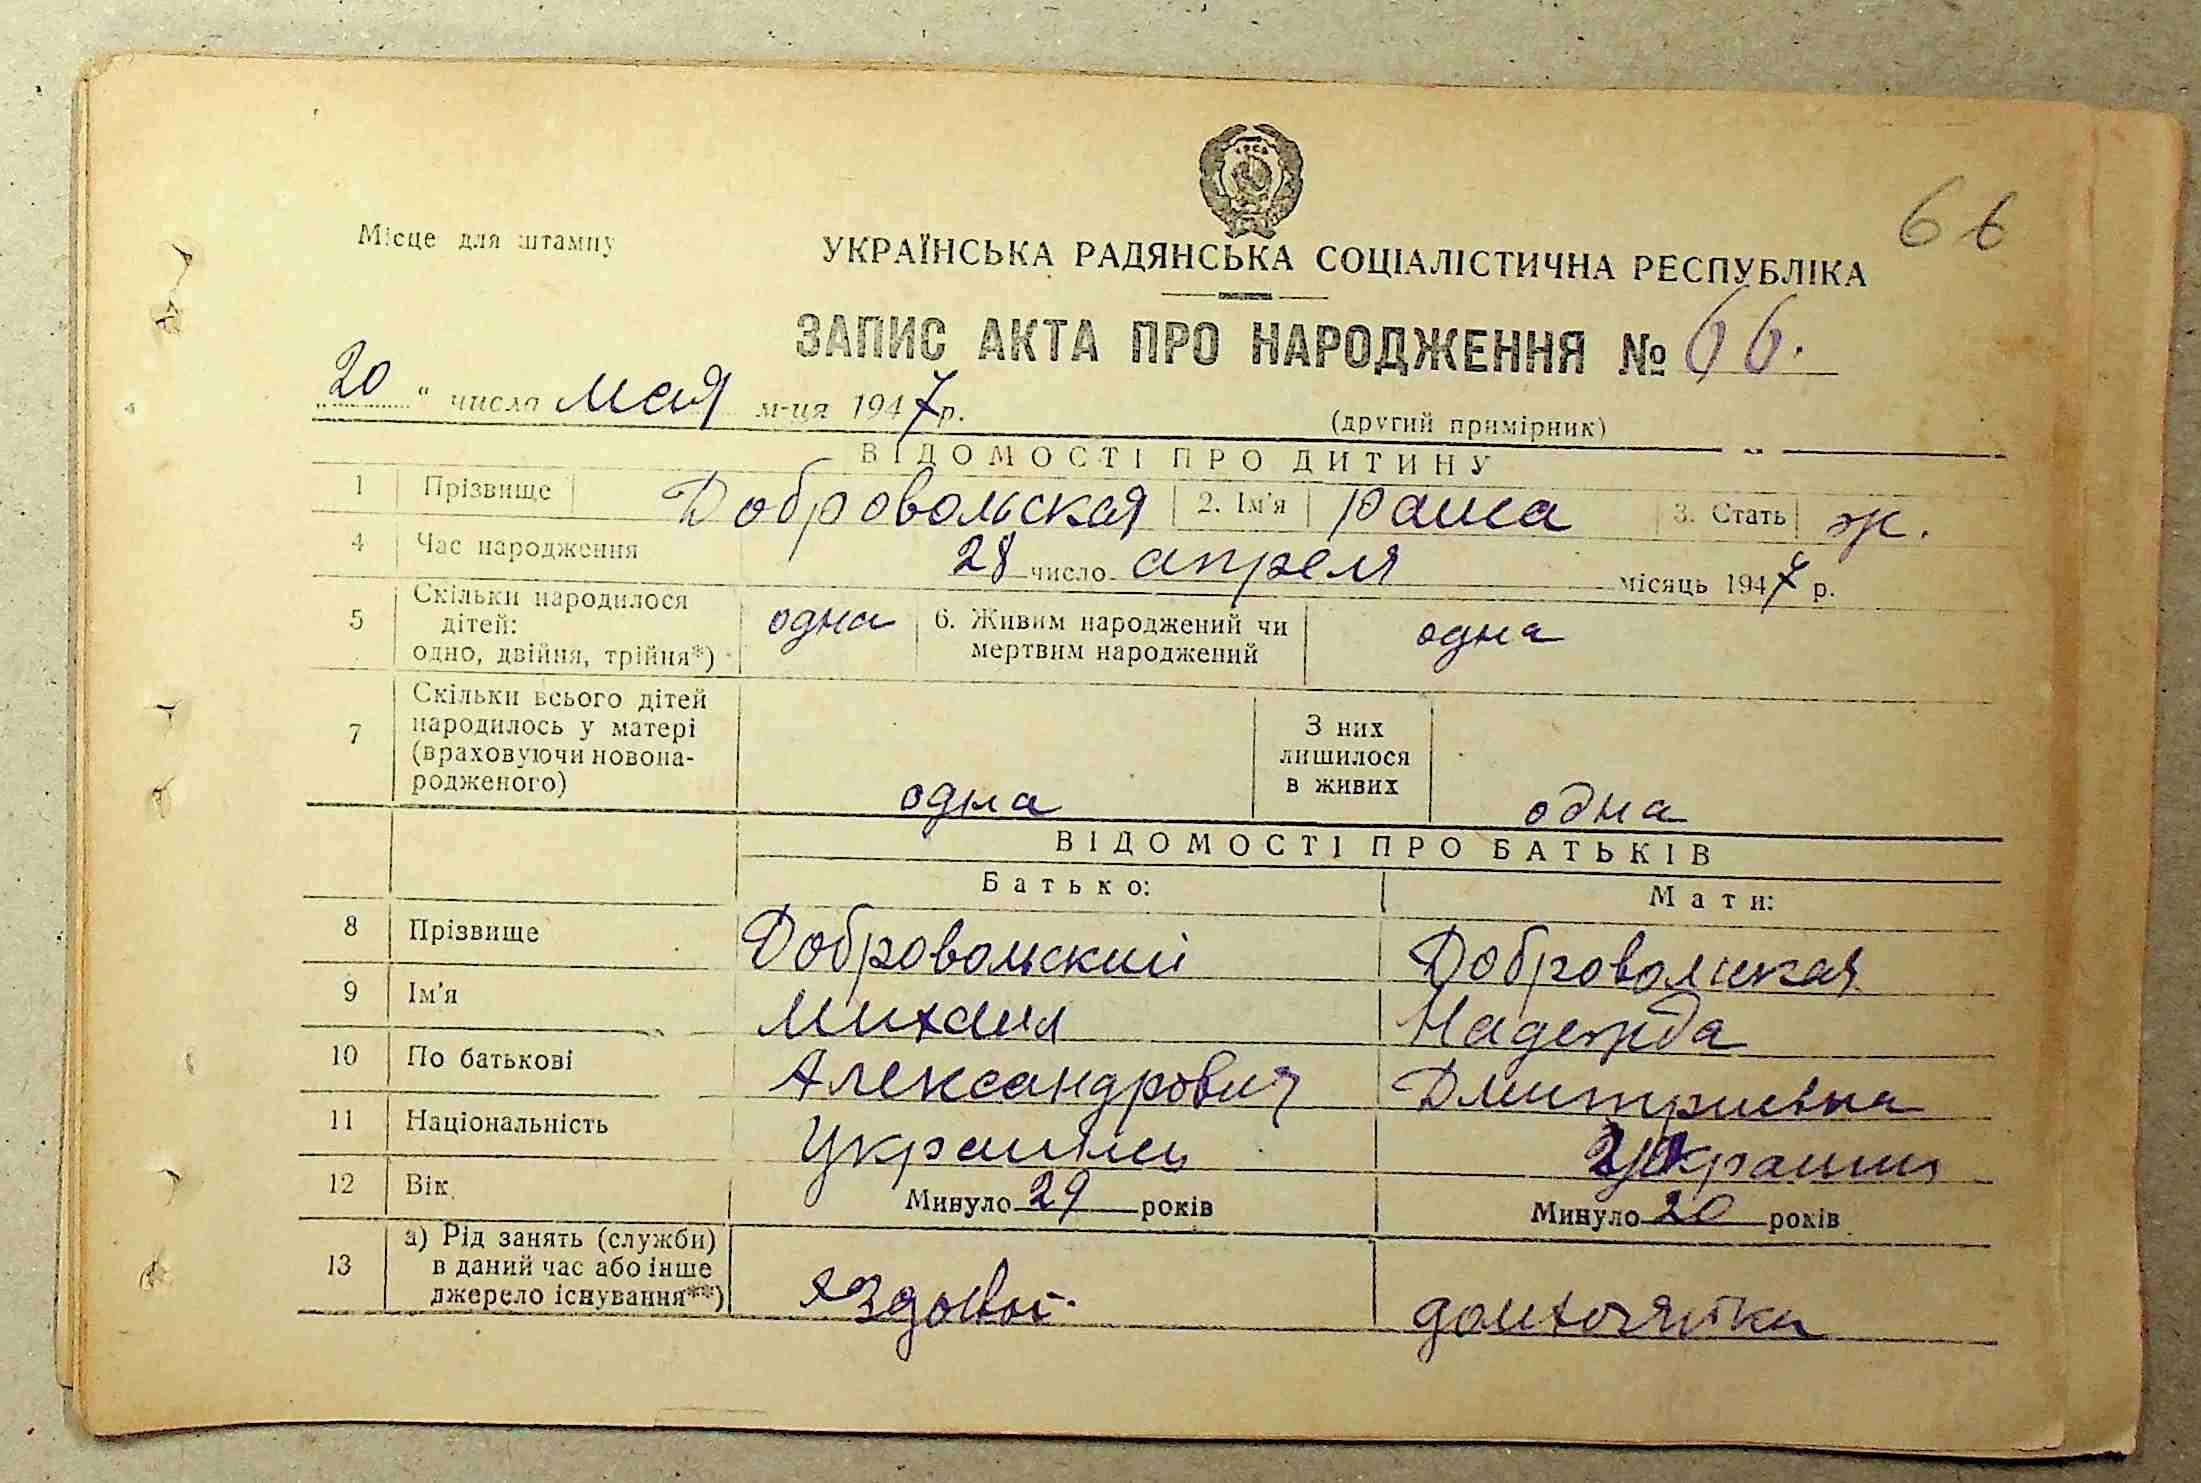 66
Місце для штампу
УКРАЇНСЬКА РАДЯНСЬКА СОЦІАЛІСТИЧНА РЕСПУБЛІКА
ЗАПИС АКТА ПРО НАРОДЖЕННЯ № 66.
„20“ числа мая м-ця 1947 р.
(другий примірник)
ВІДОМОСТІ ПРО ДИТИНУ
1 Прізвище Добровольская 2. Ім'я Раиса 3. Стать ж.
4 Час народження 28 число апреля місяць 1947 р.
5 Скільки народилося дітей: одно, двійня, трійня*) одна 6. Живим народжений чи мертвим народжений одна
7 Скільки всього дітей народилось у матері (враховуючи новонародженого) одна З них лишилося в живих одна
ВІДОМОСТІ ПРО БАТЬКІВ
Батько: Мати:
8 Прізвище Добровольский Добровольская
9 Ім'я Михаил Надежда
10 По батькові Александрович Дмитриевна
11 Національність Украинец
12 Вік Минуло 29 років Минуло 20 років
13 а) Рід занять (служби) в даний час або інше джерело існування**) домхозяйка